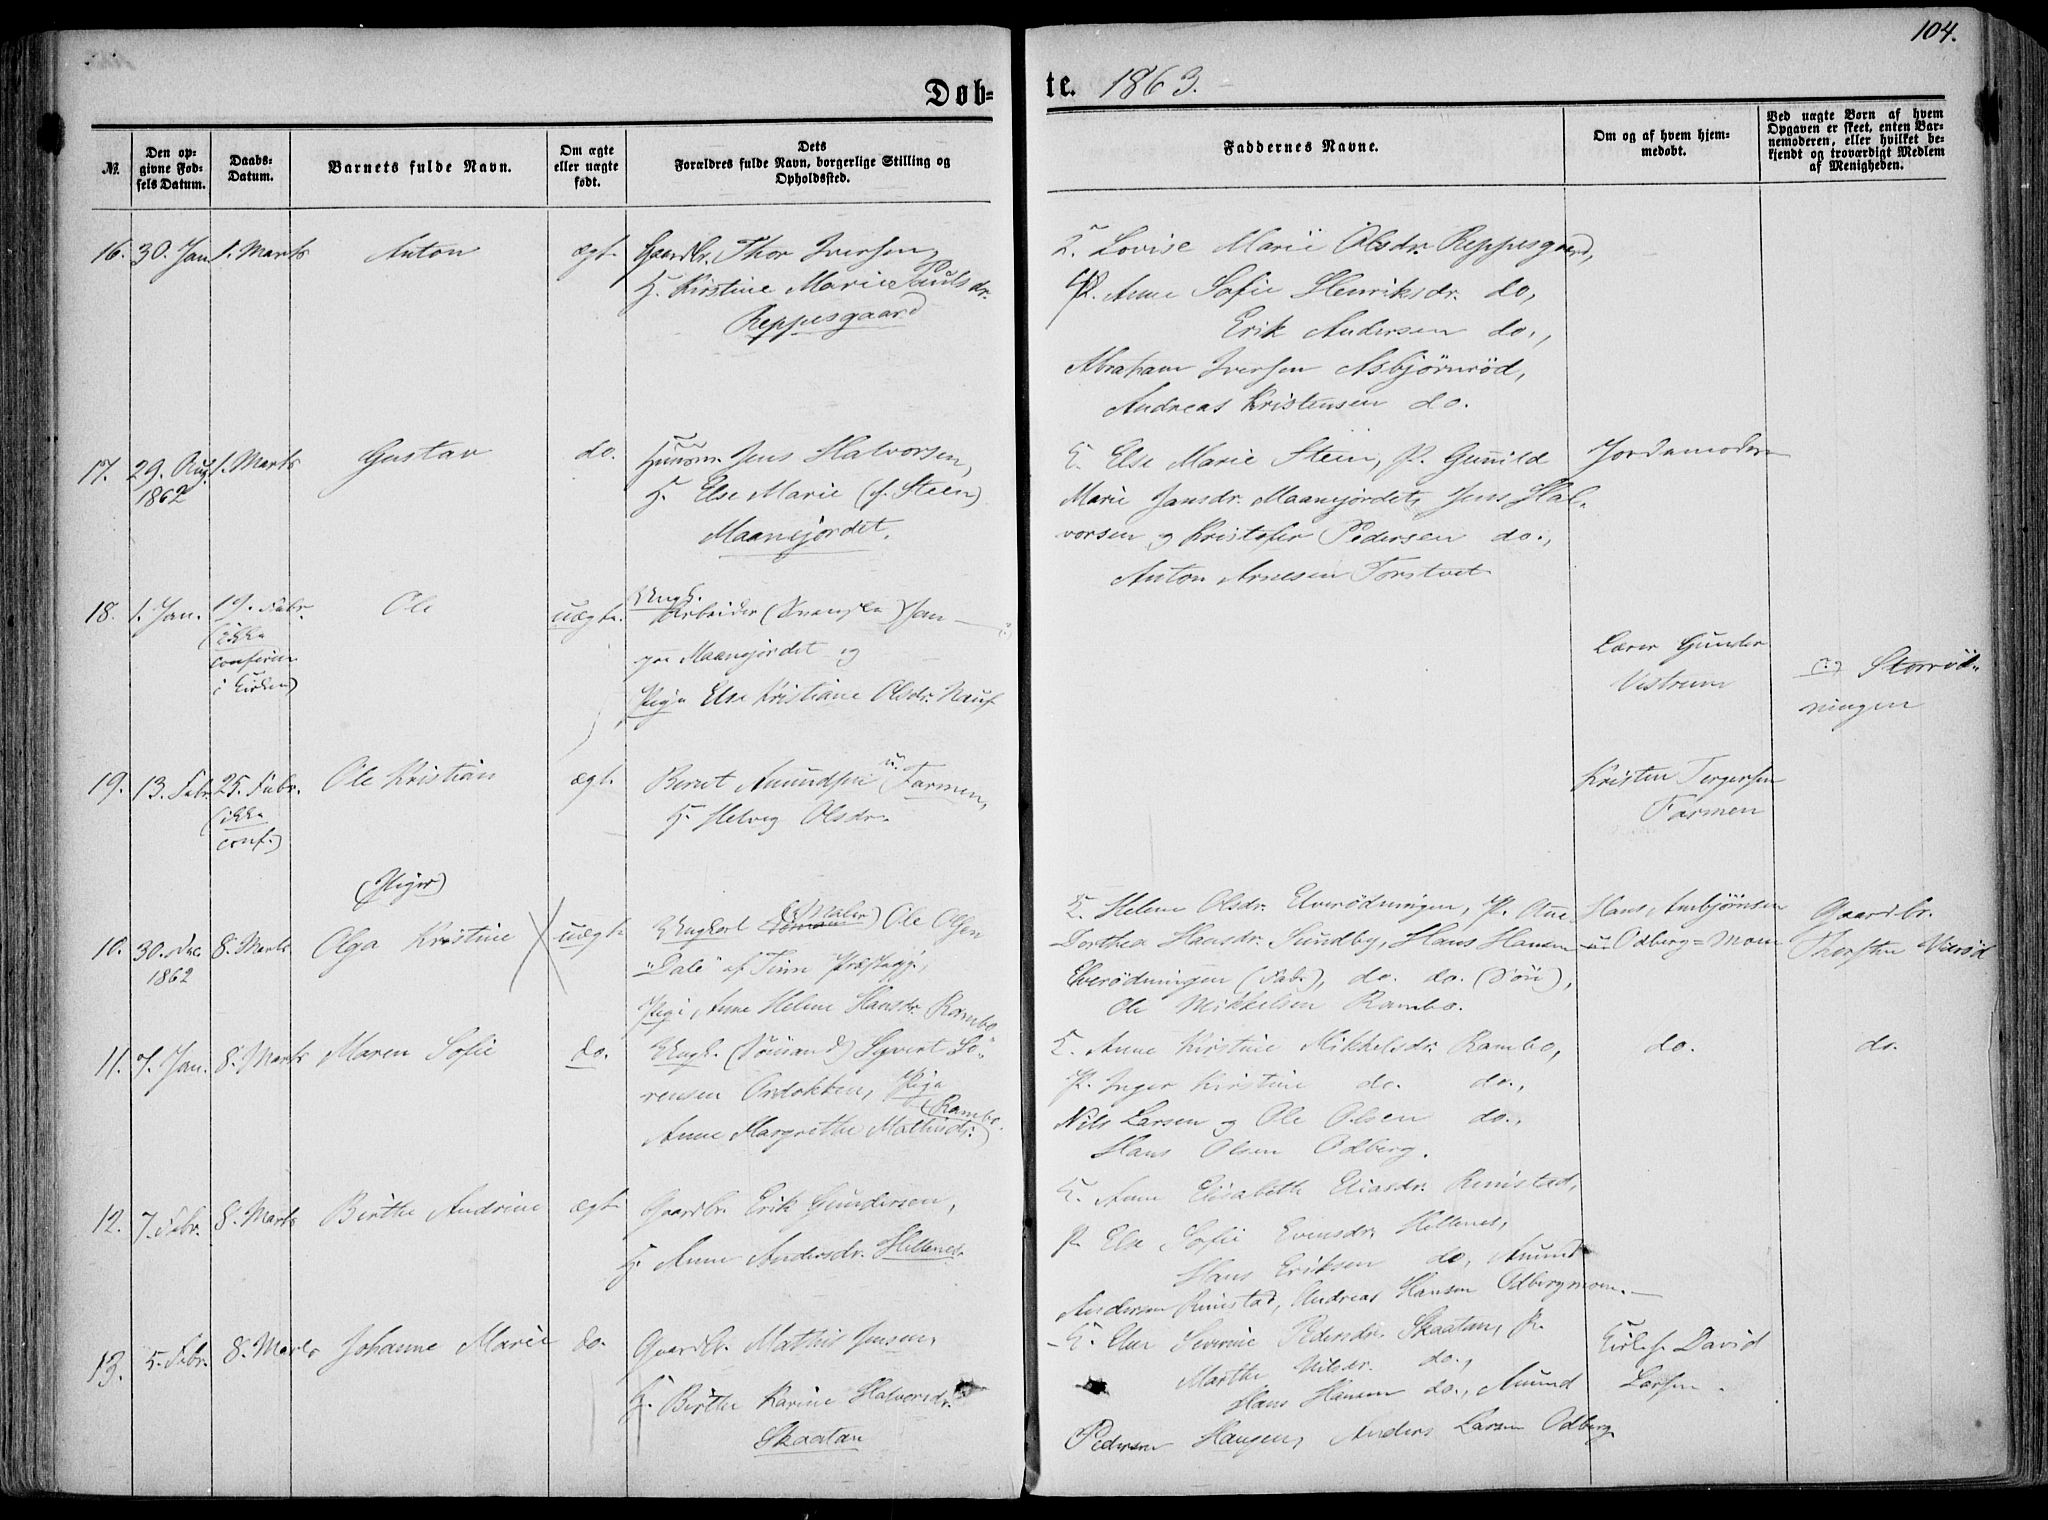 104.
Døb= te. 1863.
№.
Den op=
givne Fød=
sels Datum.
Daabs=
Datum.
Barnets fulde Navn.
Om ægte
eller uægte
født.
Dets
Forældres fulde Navn, borgerlige Stilling og
Opholdssted.
Faddernes Navne.
Om og af hvem hjem=
medøbt.
Ved uægte Børn af hvem
Opgaven er skeet, enten Bar=
nemoderen, eller hvilket be=
kjendt og troværdigt Medlem
af Menigheden.
16. 30. Jan 1. Marts Anton ægt. Gaardbr. Thor Iversen,
H. Kirstine Marie Pauls dr.
Reppesgaard
K. Lovise Marie Olsdr. Reppesgaard,
P. Anne Sofie Henriksdr. do,
Erik Andersen do.,
Abraham Iversen Asbjørnrød,
Andreas Kristensen do.
17. 29. Aug. 1. Marts Gustav do. Jens Halvorsen,
1862
H. Else Marie (f. Steen)
Maanejordet.
K. Else Marie Steen, P. Gunild
Marie Jansdr. Maanejordet, Jens Hal-
vorsen og Kristofer Pedersen do.,
Anton Arnesen Torstvet
Jordemoder
18. 1. Jan. 19. Febr. Ole uægte. Ungk.
(ikke
confirm
i Kirken)
Arbeider (Svenske) Jan — (?)
paa Maanejordet og
Pige Else Kristiane Olsdr. Nauf
Lærer Gunder
Vestrum
(?) Storrød-
ningen
19. 13. Febr. 25. Febr. Ole Kristian ægt. Bernt Amundsen u. Farmen,
(ikke
conf.)
H. Helvig Olsdr.
Kristen Torgersen
Farmen
(Piger)
10. 30. Dec 8. Marts Olga Kristine uægt. Ungkarl (Maler) Ole Olsen
1862
"Dale" af Tinn Præstegj.,
Pige Anne Helene Hansdr. Rambo
K. Helene Olsdr. Elverødningen, P. Ane
Dorthea Hansdr. Sundby, Hans Hansen
Elverødningen (Fabr), do. do. (Søn),
Ole Mikkelsen Rambo.
Hans Ambjørnsen
Odberg=Moen
Gaardbr.
Thorsten Varød
11. 7. Jan. 8. Marts Maren Sofie do. Ungk. (Sømand) Syvert Sø-
rensen Ordokken, Pige
(Rambo.
Anne Margrethe Mathisdr.)
K. Anne Kirstine Mikkelsdr. Rambo,
P. Inger Kirstine do. do.,
Nils Larsen og Ole Olsen do.,
Hans Olsen Odberg.
do.
do.
12. 7. Febr. 8. Marts Birthe Andrine ægt. Gaardbr. Erik Gundersen,
H. Anne Andersdr. Hellenes
K. Anne Elisabeth Eliasdr. Rimstad,
P. Else Sofie Evensdr. Hellenes,
Hans Eriksen do, Amund
Andersen Rimstad, Andreas Hansen Odbergmoen.
13. 5. Febr. 8. Marts Johanne Marie do. Gaardbr. Mathis Jensen,
H. Birthe Karine Halvorsdr.
Skaatan
K. Else Severine Pedersdr. Skaatan, P.
Marthe Nilsdr. do.,
Hans Hansen do., Amund
Pedersen Haugen, Anders Larsen Odberg
Kirkes. David
Larsen.